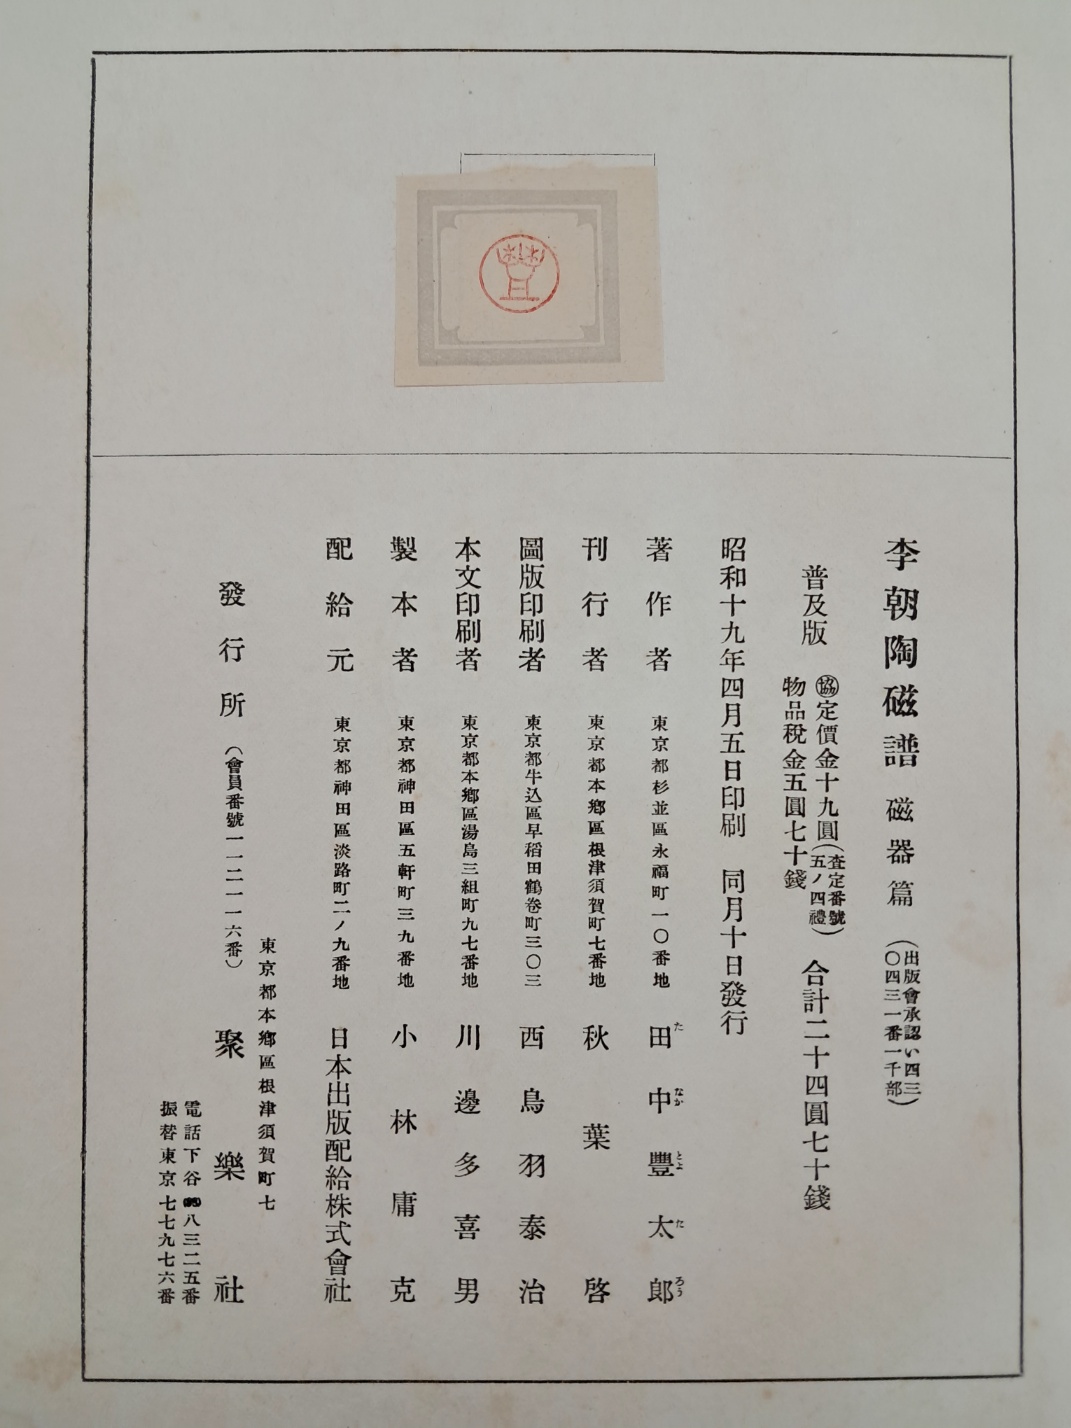 李朝陶磁譜 磁器篇 (出版會承認い四三〇四三一番一千部)
普及版 ㊿定價金十九圓(査定番號五ノ四禮) 物品稅金五圓七十錢 合計二十四圓七十錢
昭和十九年四月五日印刷 同月十日發行
著作者 東京都杉並區永福町一〇番地 田中豐太郎
た なか とよ た ろう
刊行者 東京都本鄉區根津須賀町七番地 秋葉啓
圖版印刷者 東京都牛込區早稻田鶴卷町三〇三 西鳥羽泰治
本文印刷者 東京都本鄉區湯島三組町九七番地 川邊多喜男
製本者 東京都神田區五軒町三九番地 小林庸克
配給元 東京都神田區淡路町二ノ九番地 日本出版配給株式會社
發行所 (會員番號一一二一一六番) 東京都本鄉區根津須賀町七
聚樂社
電話下谷 八三二五番
振替東京七七九七六番